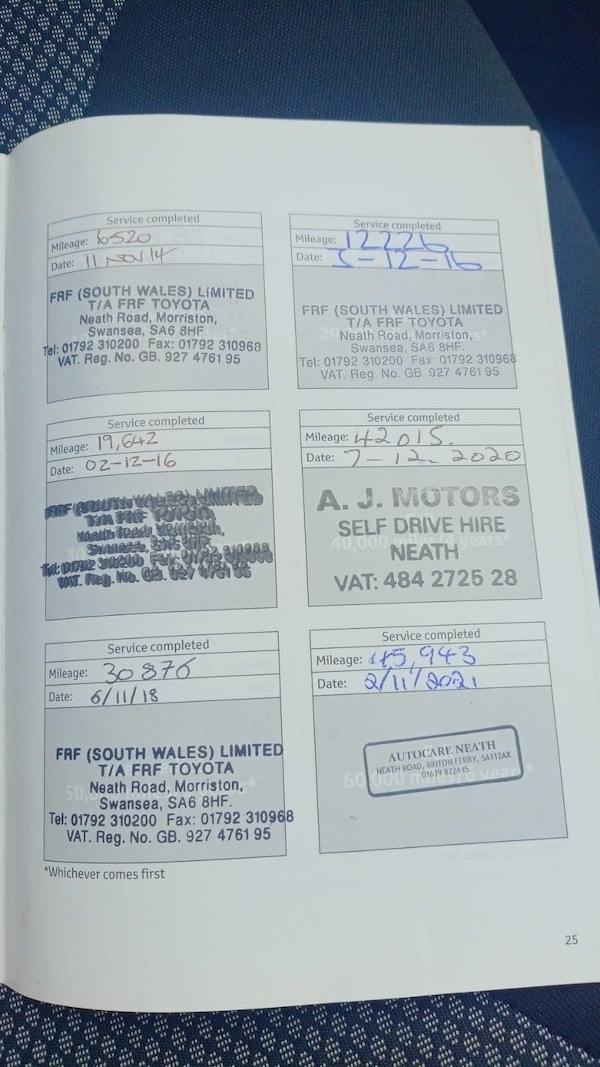 Service completed
Mileage: 6520
Date: 11 NOV 14
FRF (SOUTH WALES) LIMITED
T/A FRF TOYOTA
Neath Road, Morriston,
Swansea, SA6 8HF.
Tel: 01792 310200 Fax: 01792 310968
VAT. Reg. No. GB. 927 4761 95
Service completed
Mileage: 12226
Date: 5-12-16
FRF (SOUTH WALES) LIMITED
T/A FRF TOYOTA
Neath Road, Morriston,
Swansea, SA6 8HF.
Tel: 01792 310200 Fax: 01792 310968
VAT. Reg. No. GB. 927 4761 95
Service completed
Mileage: 19,642
Date: 02-12-16
FRF (SOUTH WALES) LIMITED
T/A FRF TOYOTA
Neath Road, Morriston,
Swansea, SA6 8HF.
Tel: 01792 310200 Fax: 01792 310968
VAT. Reg. No. GB. 927 4761 95
Service completed
Mileage: 42015.
Date: 7-12-2020
A. J. MOTORS
SELF DRIVE HIRE
40,000 miles/4 years*
NEATH
VAT: 484 2725 28
Service completed
Mileage: 30876
Date: 6/11/18
FRF (SOUTH WALES) LIMITED
T/A FRF TOYOTA
Neath Road, Morriston,
Swansea, SA6 8HF.
Tel: 01792 310200 Fax: 01792 310968
VAT. Reg. No. GB. 927 4761 95
Service completed
Mileage: 45,943
Date: 2/11/2021
AUTOCARE NEATH
NEATH ROAD, BRITON FERRY, SA112AX
01639 822445
*Whichever comes first
25